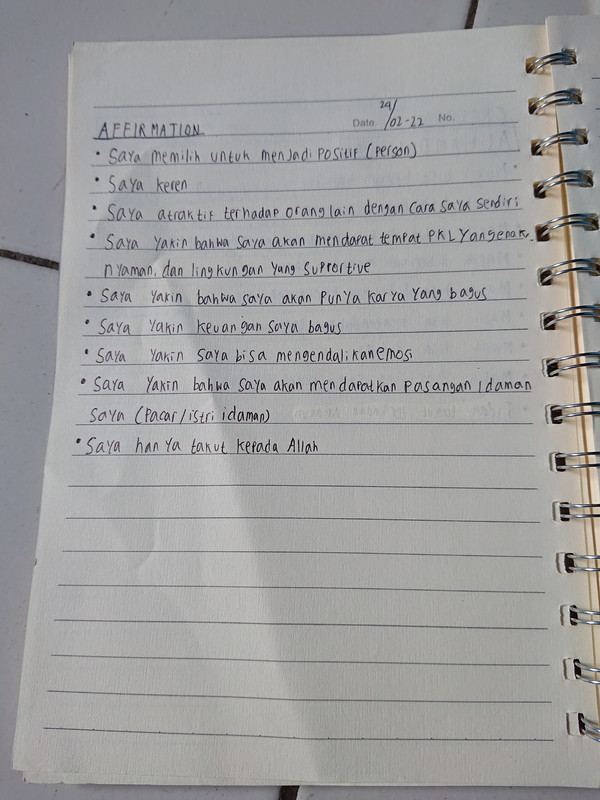 24/
Date /02-22 No.
AFFIRMATION
• Saya memilih untuk menjadi positif (person)
• Saya keren
• Saya atraktif terhadap orang lain dengan cara saya sendiri
• Saya yakin bahwa saya akan mendapat tempat PKL yang enak,
nyaman, dan lingkungan yang supportive
• Saya yakin bahwa saya akan punya karya yang bagus
• Saya yakin keuangan saya bagus
• Saya yakin saya bisa mengendalikan emosi
• Saya yakin bahwa saya akan mendapatkan pasangan idaman
saya (pacar/istri idaman)
• Saya hanya takut kepada Allah